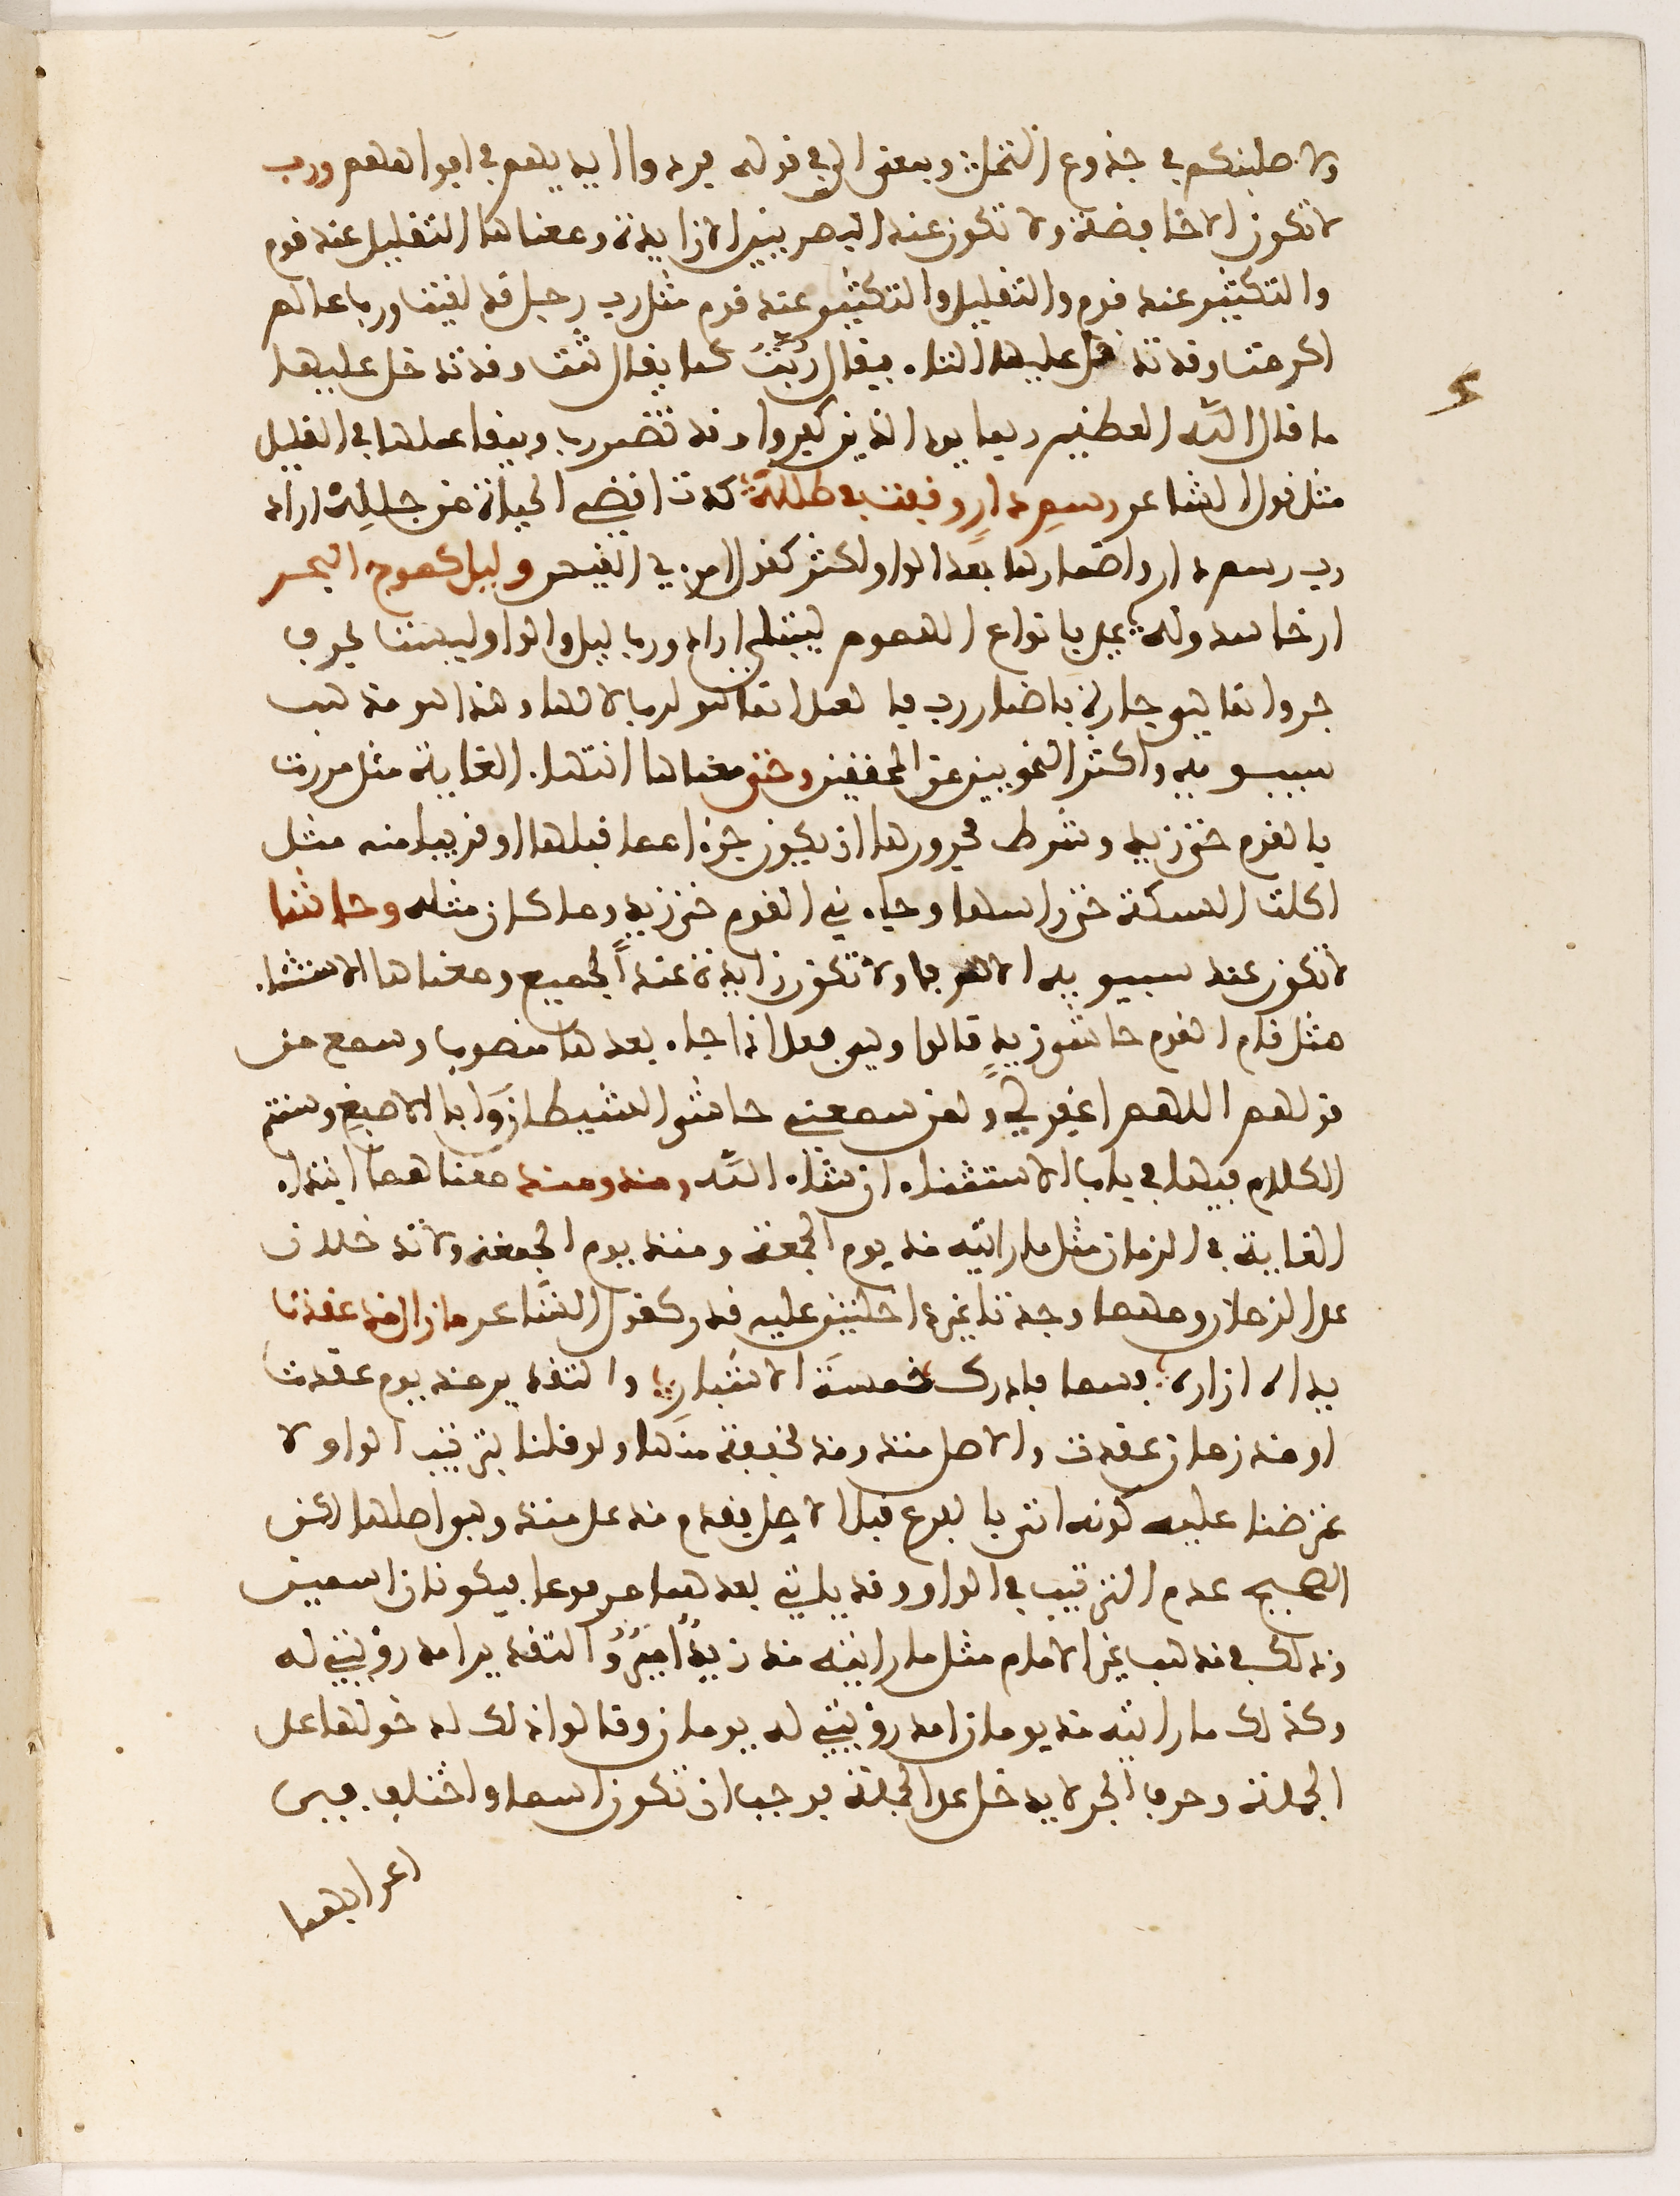 ولاصلبنكم في جذوع النخل وبمعنى الى في قوله فردوا ايديهم في افواههم ورب
لا تكون الا خافضة ولا تكون عند البصريين الا زايدة ومعناها التقليل عند قوم
والتكثير عند قوم والتقليل والتكثير عند قوم مثل رب رجل قد لقيت ورب عالم
اكرمت وقد تدخل عليها التاء فيقال رُبَّتَ كما يقال ثمت وقد تدخل عليها
ما قال الله العظيم ربما يود الذين كفروا وقد تضمر رب ويبقا عملها في القليل
مثل قول الشاعر رسم دارٍ وقفت في طلله كدت اقضي الحياة من جلله اراد
رب رسم دار واضمارها بعد الواو اكثر كقول امرئ القيس وليل كموج البحر
ارخا سدوله علي بانواع الهموم ليبتلي اراد ورب ليل والواو ليست بحرف
جر وانما هي جارة باضمار رب فالعمل انما هو لرب لا لها وهذا هو مذهب
سيبويه واكثر النحويين من المحققين وحتى معناها انتهاء الغاية مثل مررت
بالقوم حتى زيد وشرط مجرورها ان يكون جزءا مما قبلها او قريبا منه مثل
اكلت السمكة حتى راسها وجاءني القوم حتى زيد وما كان مثله وحاشا
لا تكون عند سيبويه الا حرفا ولا تكون زايدة عند الجميع ومعناها الاستثناء
مثل قام القوم حاشى زيدٍ قالوا وهي فعل اذا جاء بعدها منصوب وسمع من
قولهم اللهم اغفر لي ولمن سمعني حاشى الشيطان وابا الاصبغ وسنتم
الكلام فيها في باب الاستثناء ان شاء الله ومنذ ومذ معناهما ابتداء
الغاية في الزمان مثل ما رايته مذ يوم الجمعة ومنذ يوم الجمعة ولا تدخلان
على الزمان ومهما وجدتا غير داخلتين عليه قدر كقول الشاعر ما زال مذ عقدت
يداه ازاره فسما فادرك خمسة الاشبار والتقدير مذ يوم عقدت
او مذ زمان عقدت والاصل منذ ومذ مخففة منها ولو قلنا بترتيب الواو لا
عترضنا عليه كونه اتى بالفرع قبل الاصل بقدم مذ على منذ وهي اصلها لكن
الصحيح عدم الترتيب في الواو وقد ياتي بعدهما مرفوعا فيكونان اسمين
وذلك في مذهب غير الامام مثل ما رايته مذ زيدٌ اميرٌ والتقدير امد رؤيتي له
وكذلك ما رايته مذ يومان امد رؤيتي له يومان وقالوا ذلك لدخولها على
الجملة وحرف الجر لا يدخل على الجملة فوجب ان تكون اسما واختلف في
اعرابهما